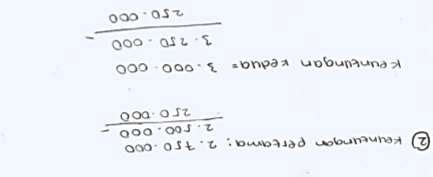 ② Keuntungan pertama: 2.750.000
2.500.000 -
250.000
Keuntungan kedua = 3.000.000
3.250.000 -
250.000